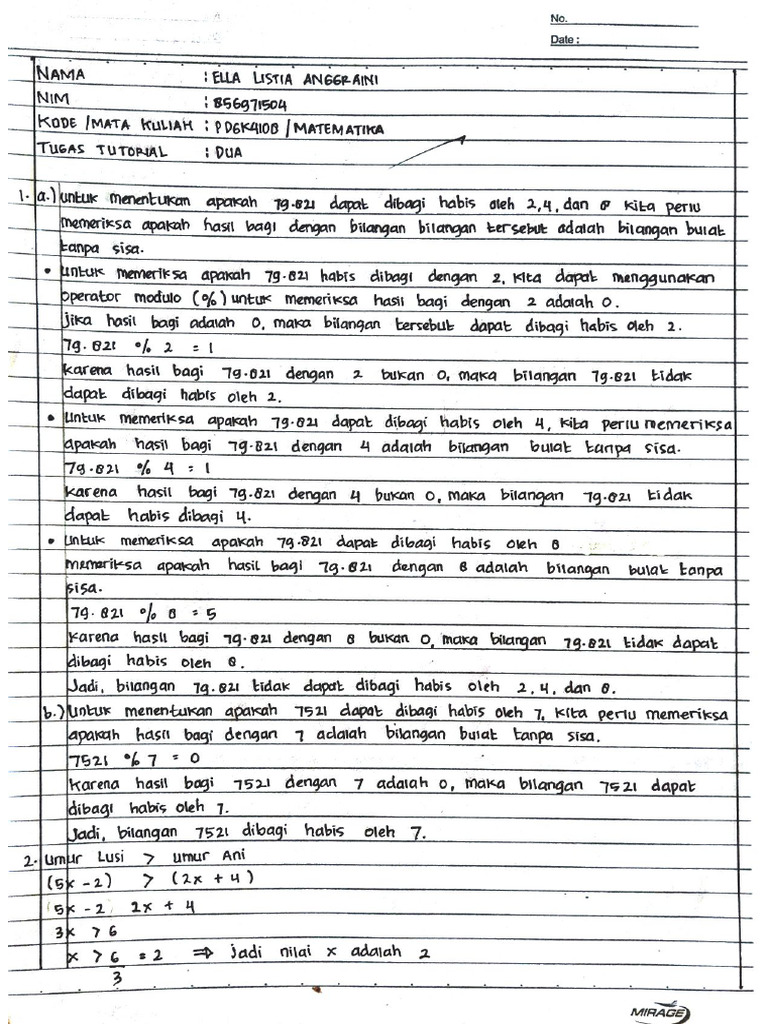 No.
Date :
NAMA : ELLA LISTIA ANGGRAINI
NIM : 856971504
KODE / MATA KULIAH : PDGK4108 / MATEMATIKA
TUGAS TUTORIAL : DUA
1. a.) Untuk menentukan apakah 79.821 dapat dibagi habis oleh 2,4, dan 8 kita perlu
memeriksa apakah hasil bagi dengan bilangan bilangan tersebut adalah bilangan bulat
tanpa sisa.
• Untuk memeriksa apakah 79.821 habis dibagi dengan 2, kita dapat menggunakan
operator modulo (%) untuk memeriksa hasil bagi dengan 2 adalah 0.
Jika hasil bagi adalah 0, maka bilangan tersebut dapat dibagi habis oleh 2.
79.821 % 2 = 1
Karena hasil bagi 79.821 dengan 2 bukan 0, maka bilangan 79.821 tidak
dapat dibagi habis oleh 2.
• Untuk memeriksa apakah 79.821 dapat dibagi habis oleh 4, kita perlu memeriksa
apakah hasil bagi 79.821 dengan 4 adalah bilangan bulat tanpa sisa.
79.821 % 4 = 1
Karena hasil bagi 79.821 dengan 4 bukan 0, maka bilangan 79.821 tidak
dapat habis dibagi 4.
• Untuk memeriksa apakah 79.821 dapat dibagi habis oleh 8
memeriksa apakah hasil bagi 79.821 dengan 8 adalah bilangan bulat tanpa
sisa.
79.821 % 8 = 5
Karena hasil bagi 79.821 dengan 8 bukan 0, maka bilangan 79.821 tidak dapat
dibagi habis oleh 8.
Jadi, bilangan 79.821 tidak dapat dibagi habis oleh 2,4, dan 8.
b.) Untuk menentukan apakah 7521 dapat dibagi habis oleh 7, kita perlu memeriksa
apakah hasil bagi dengan 7 adalah bilangan bulat tanpa sisa.
7521 % 7 = 0
Karena hasil bagi 7521 dengan 7 adalah 0, maka bilangan 7521 dapat
dibagi habis oleh 7.
Jadi, bilangan 7521 dibagi habis oleh 7.
2. Umur Lusi > umur Ani
(5x - 2) > (2x + 4)
5x - 2 2x + 4
3x > 6
x > 6 = 2 ⇒ jadi nilai x adalah 2
3
MIRAGE